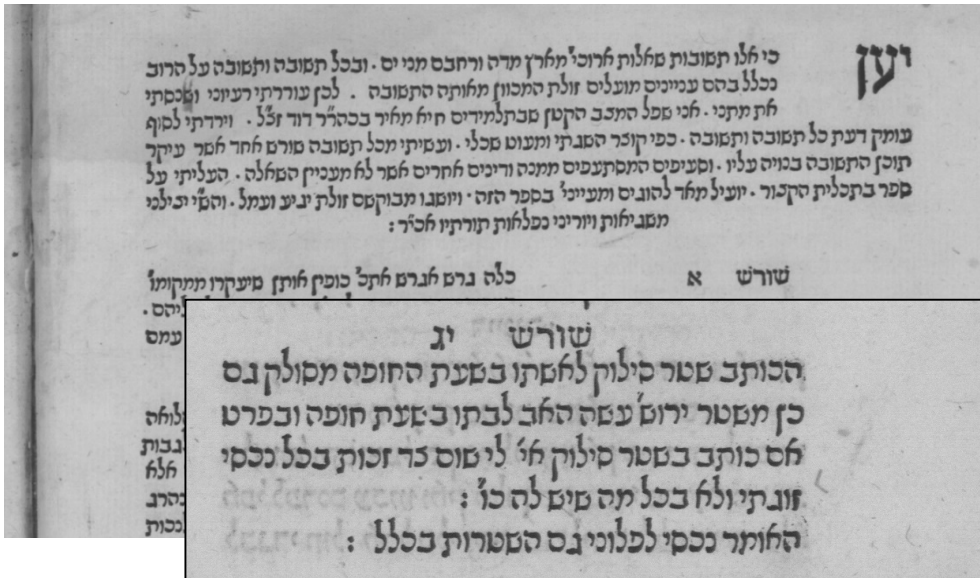 יען כי אלו תשובות שאלות ארוכי׳ מארץ מדה ורחבם מני ים . ובכל תשובה ותשובה על הרוב
נכלל בהם עניינים מועלים זולת המכוון מאותה התשובה . לכן עוררתי רעיוני ושנסתי
את מתני . אני שפל המצב הקטן שבתלמידים חייא מאיר בכה״ר דוד זצ״ל . וירדתי לסוף
עומק דעת כל תשובה ותשובה . כפי קוצר השגתי ומעוט שכלי . ועשיתי מכל תשובה שורש אחד אשר עיקר
תוכן התשובה בנויה עליו . וסעיפים המסתעפים ממנה ודינים אחרים אשר לא מעניין השאלה . העליתי על
ספר בתכלית הקצור . יועיל מאד להוגים ומעייני׳ בספר הזה . וישיגו מבוקשם זולת יגיע ועמל . והש״י יצילני
משגיאות ויוריני נפלאות תורתיו אכי״ר :
שורש א כלה גרש אגרש אתכ׳ כופין אותן שיעקרו ממקומו׳
יהם .
עמם
לואה
גבות
אלא
בהרג
נכות
שורש יג
הכותב שטר סילוק לאשתו בשעת החופה מסולק גם
כן משטר ירוש׳ עשה האב לבתו בשעת חופה ובפרט
אם כותב בשטר סילוק אי׳ לי שום צד זכות בכל נכסי
זוגתי ולא בכל מה שיש לה כו׳ :
האומר נכסי לפלוני גם השטרות בכלל :